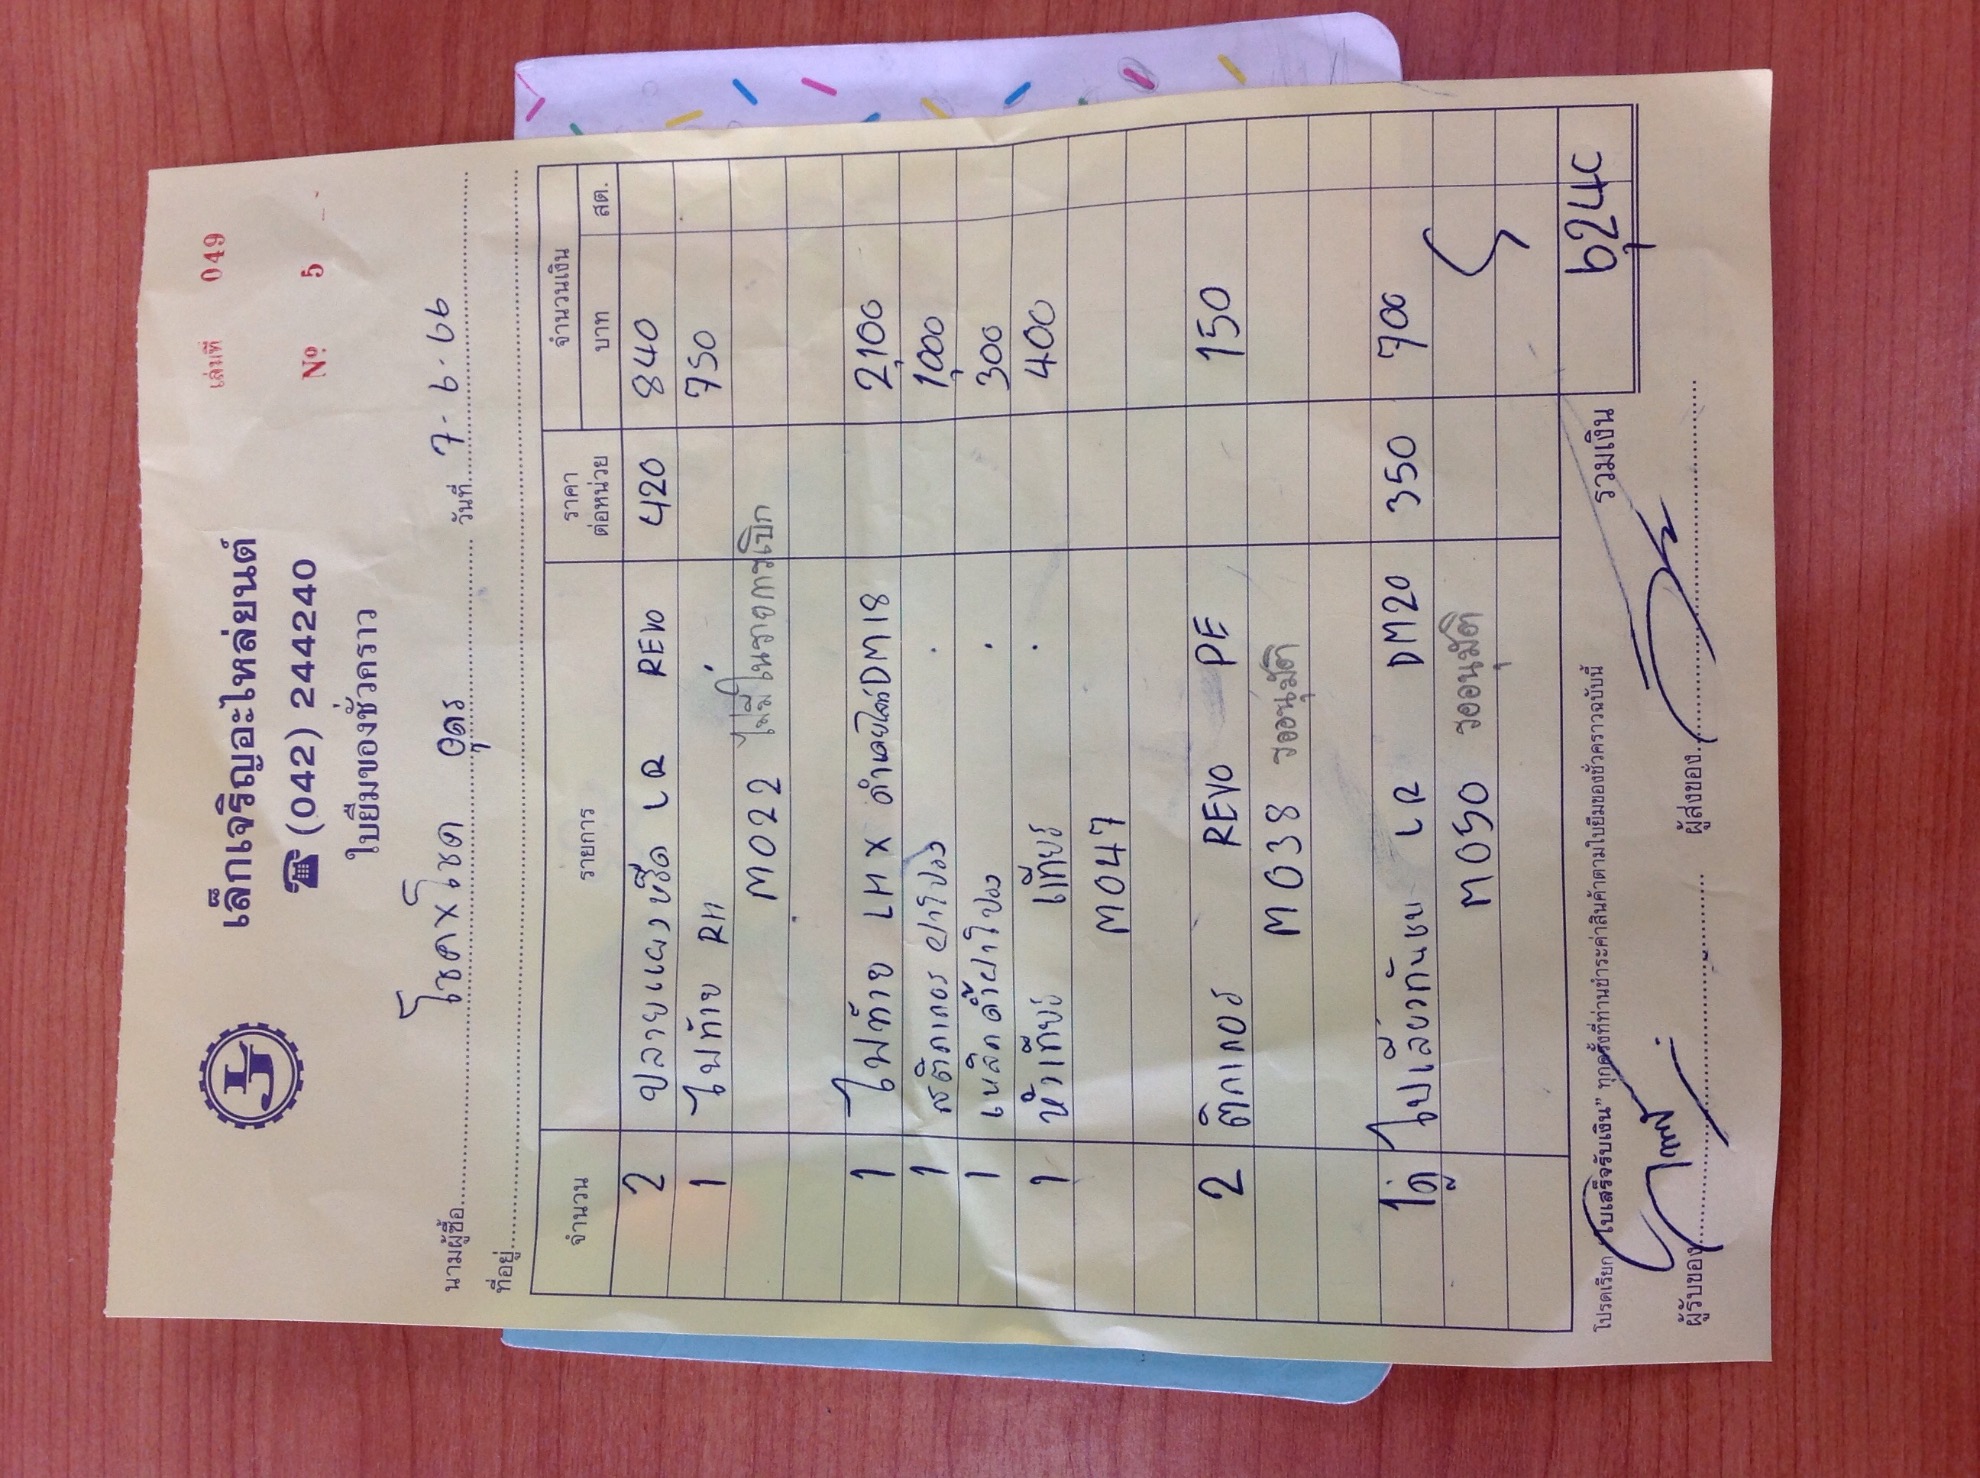 เล่มที่ 049
เล็กเจริญอะไหล่ยนต์
☎ (042) 244240
№ 5
ใบยืมของชั่วคราว
นามผู้ซื้อ โชคxโชค อุดร วันที่ 7-6-66
ที่อยู่
จำนวน รายการ ราคาต่อหน่วย จำนวนเงิน บาท สต.
2 ปลายแผงบซีด LR REVO 420 840
1 ไฟท้าย RH 750
M022 ไม่มีในรายการเบิก
1 ไฟท้าย LH X DM18 2,100
1 สติกเกอร์ ฝาโปง 1,000
1 เหล็กค้ำฝาโปง 300
1 หัวเกียร์ เกียร์ 400
M047
2 ติกเกอร์ REVO PE 150
M038 รออนุมัติ
1คู่ ไฟเลี้ยวกันชน LR DM20 350 700
M050 รออนุมัติ
รวมเงิน 6,240
โปรดเรียก "ใบเสร็จรับเงิน" ทุกครั้งที่ท่านชำระค่าสินค้าตามใบยืมของชั่วคราวฉบับนี้
ผู้รับของ ผู้ส่งของ